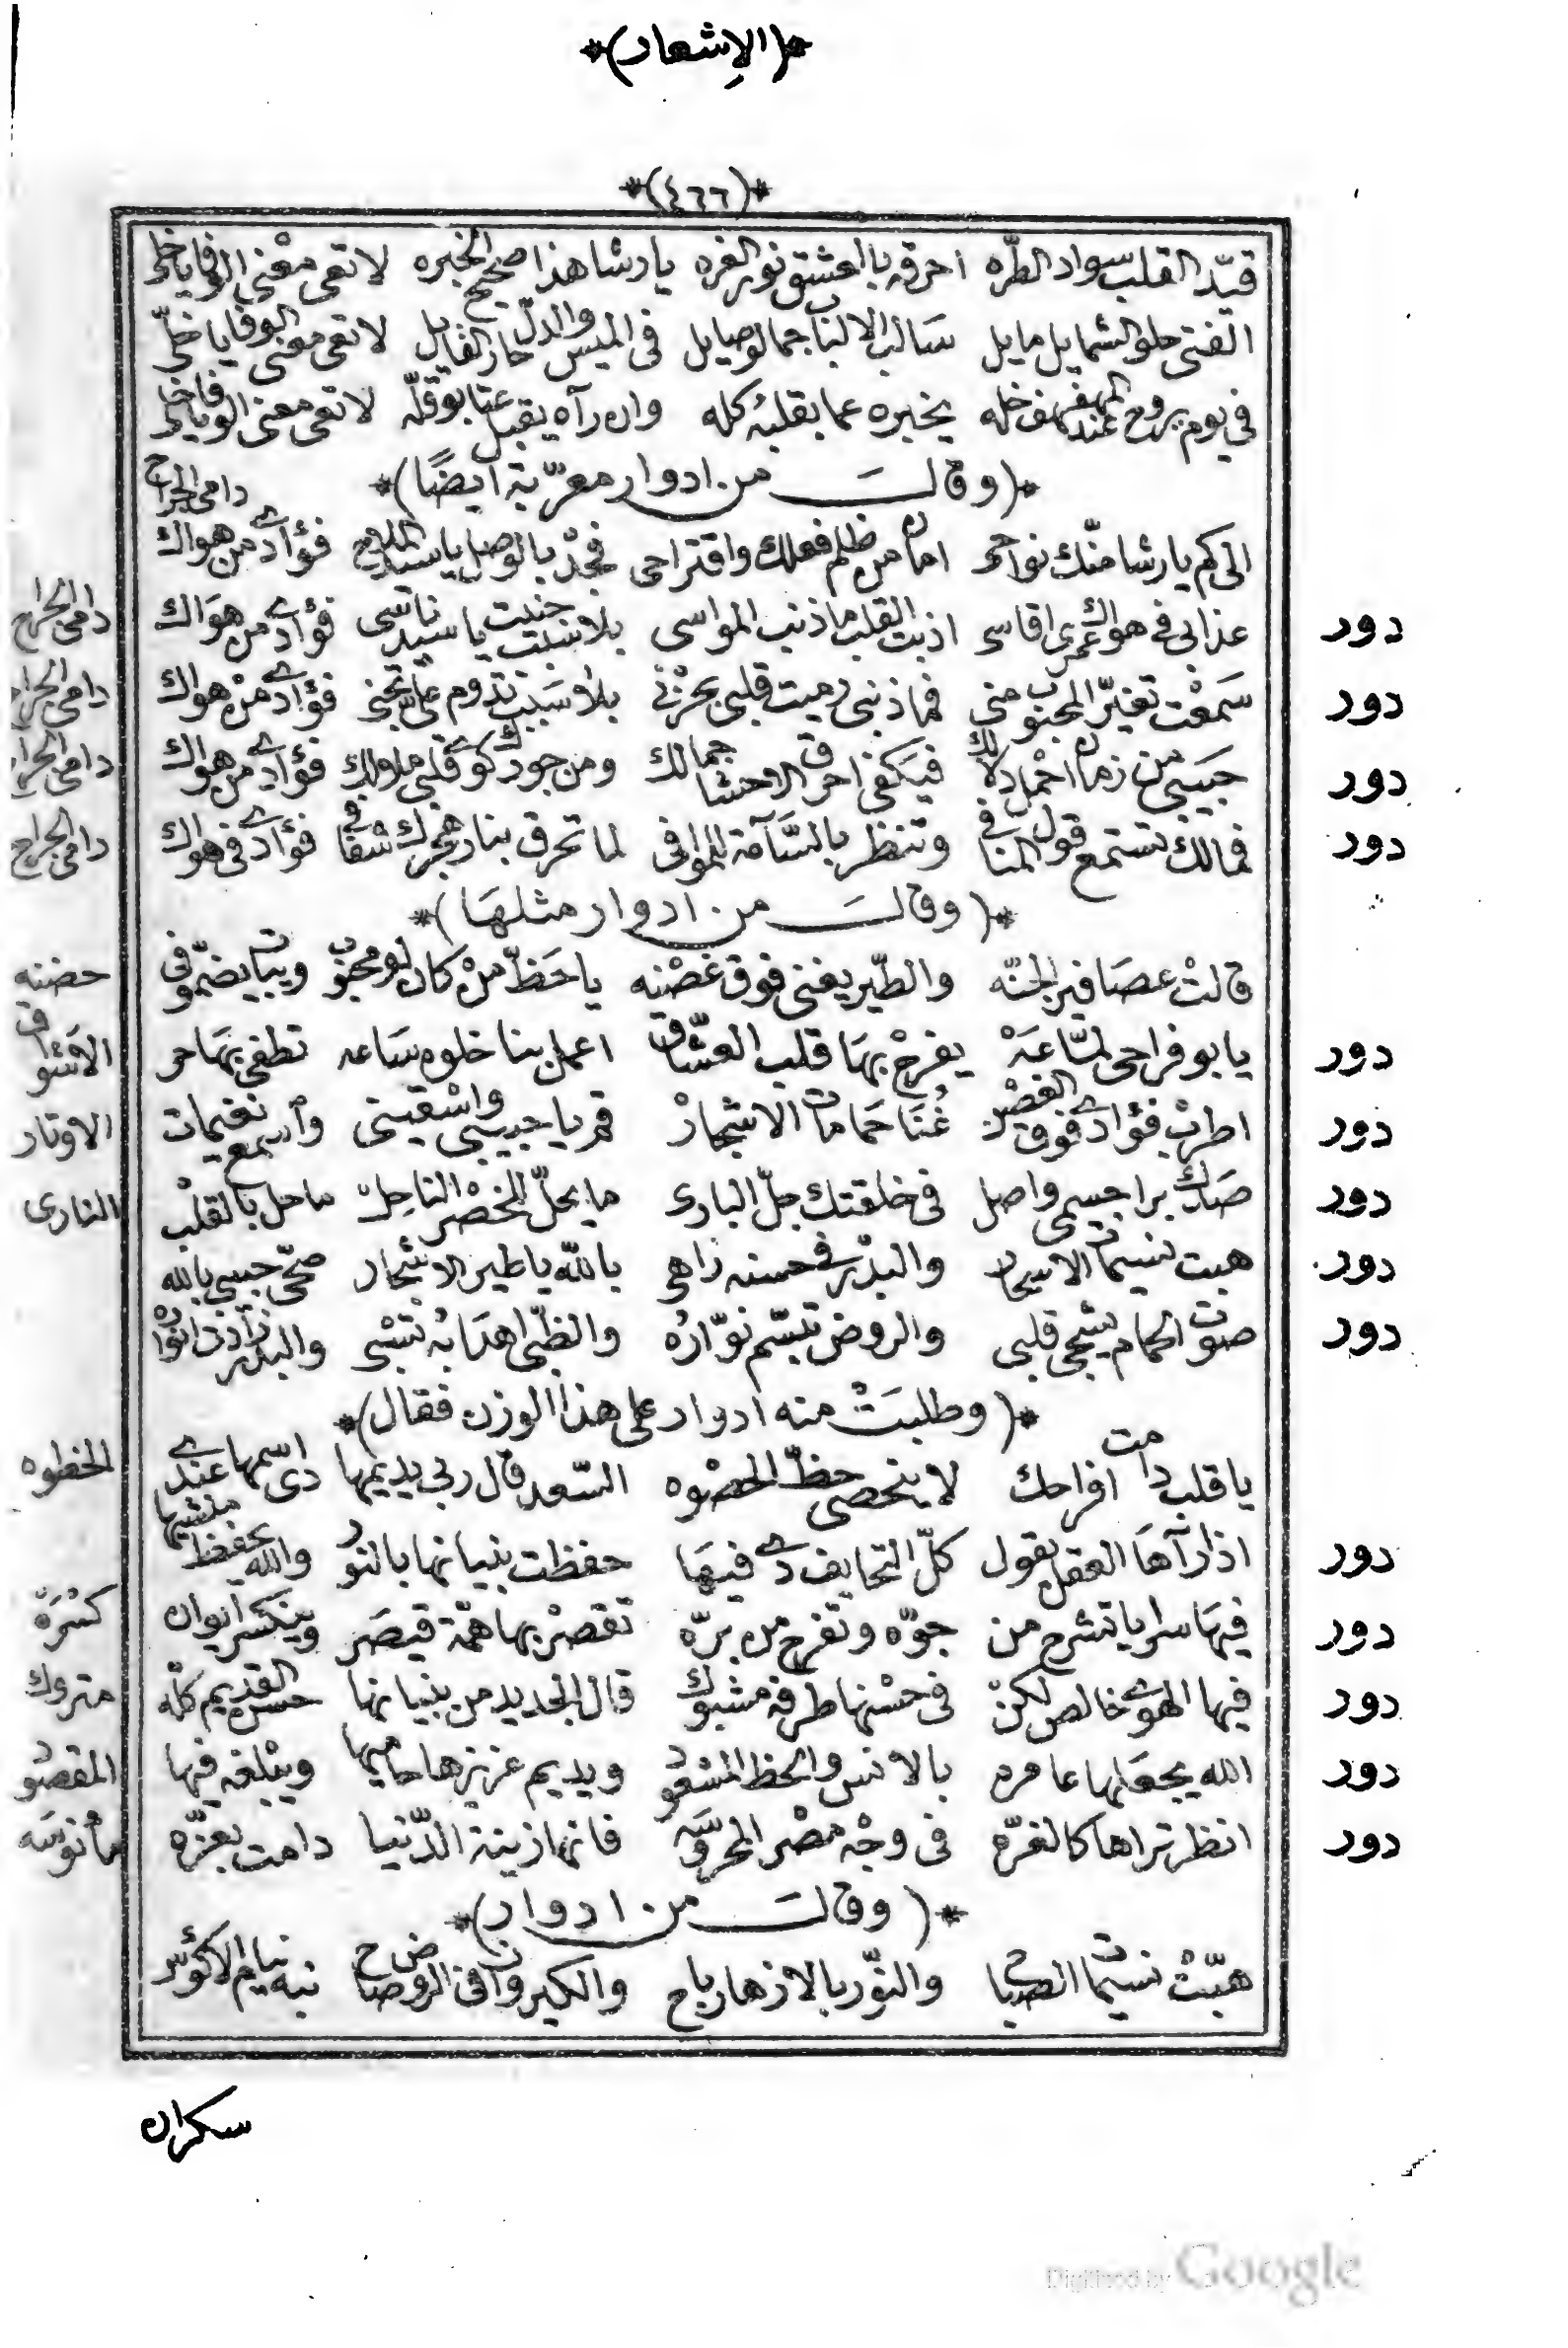 *(الإشعار)*
*(٤٦٦)*
قيّد القلب سواد الطّره احرقه بالعشق نور الغره يا رشا هذا صحيح الخبره لا تعى معنى الوفا يا خلّى
الفتى حلو الشمايل مايل سالب الالباب جمالو صايل فى الميس والدلّ حار القايل لا تعى معنى الوفا يا خلّى
فى يوم يروح عند المهفهف خله يخبره عما بقلبهُ كله وان رآه يقبل عتابو قلّه لا تعى معنى الوفا يا خلّى
*(وقالت من ادوار معرّبة أيضًا)*
الى كم يا رشا منّك نواحى امان من ظلم فعلك واقتراحى فجُدْ بالوصل يا سيد الملاح فؤادے من هواك دامى الجراح
دور عذابى فى هواك عمرى اقاسى اذبت القلب ماذنب المواسى بلا ذنب جنيت يا سيد ناسى فؤادے من هواك دامى الجراح
دور سمعْت تغيّر المحبوب منى فما ذنبى رميت قلبى بحزْنى بلا سبب تدوم على تجنى فؤادے منْ هواك دامى الجراح
دور حبيبى من زمان احْمل دلالك فيكفى احراق الاحشا جمالك ومن جودك كوے قلبى ملالك فؤادے من هواك دامى الجراح
دور فمالك تستمع قول المنافى وتنظر بالسّآمة للموافى لما تحرق بنار هجرك شغافى فؤادے فى هواك دامى الجراح
*(وقالت من ادوار مثلها)*
قالتْ عصافير الجنّه والطّير يغنى فوق غصْنه يا حَظّ منْ كان لو محبوب ويبات يضمّو فى حضنه
دور يا بو فراحى لسّاعَهْ يفرحْ بهَا قلب العشّاق اعمل بنا خلوه ساعه تطفى بها حر الاشواق
دور اطربْ فؤادے فوق الغصْن غُنَا حَمَامات الاشجارْ قم يا حبيبى واسْقينى واسمع نغيمات الاوتار
دور صدّك برا جسمى واصل فى خلقتك جلّ البارى ما يحلّ للخصْر الناحل ما حل بالقلب النارى
دور هبت نسيمات الاسحار والبدْر فى حسنه زاهى بالله يا طير الاشجار صحّى حبيبى بالله
دور صوت الحمام يشجى قلبى والروض تبسّم نوّارُه والظّبى اهدَابُه تسْبى والبدْر زادت انواره
*(وطلبَتْ منه ادوار على هذا الوزن فقال)*
يا قلب دامت افراحك لا ينحصى حظّ الحضْوه السّعد قال ربى يديمها دى اسمها عندے الخطوه
دور اذا رآها العقل يقول كلّ التحايف دے فيهَا حفظت بنيانها بالنور والله يحفظ منشيها
دور فيهَا سرايا تشرح من جوّه وتفرح من برّه تقصرْ بها همّة قيصَر وينكسر ايوان كسْرَهْ
دور فيها الهوے خالص لكنْ فى حسْنها طرفه مشبوك قال الجديد من بنيانها حسن القديم كلّه متروك
دور الله يجعلها عامره بالانس والحظ المسْعود ويديم عزيزها حاميها ويبْلغه فيها المقصود
دور انظر تراها كالغرّه فى وجْه مصْر المحروسَه فانها زينة الدّنيا دامت بعزّه مأنوسَه
*(وقالت من ادوار)*
هبّتْ نسيمات الصباح والنّور بالازهار باح والكيروان فى الروض صاح نبه نيام الاكؤس
سكران
Digitized by Google